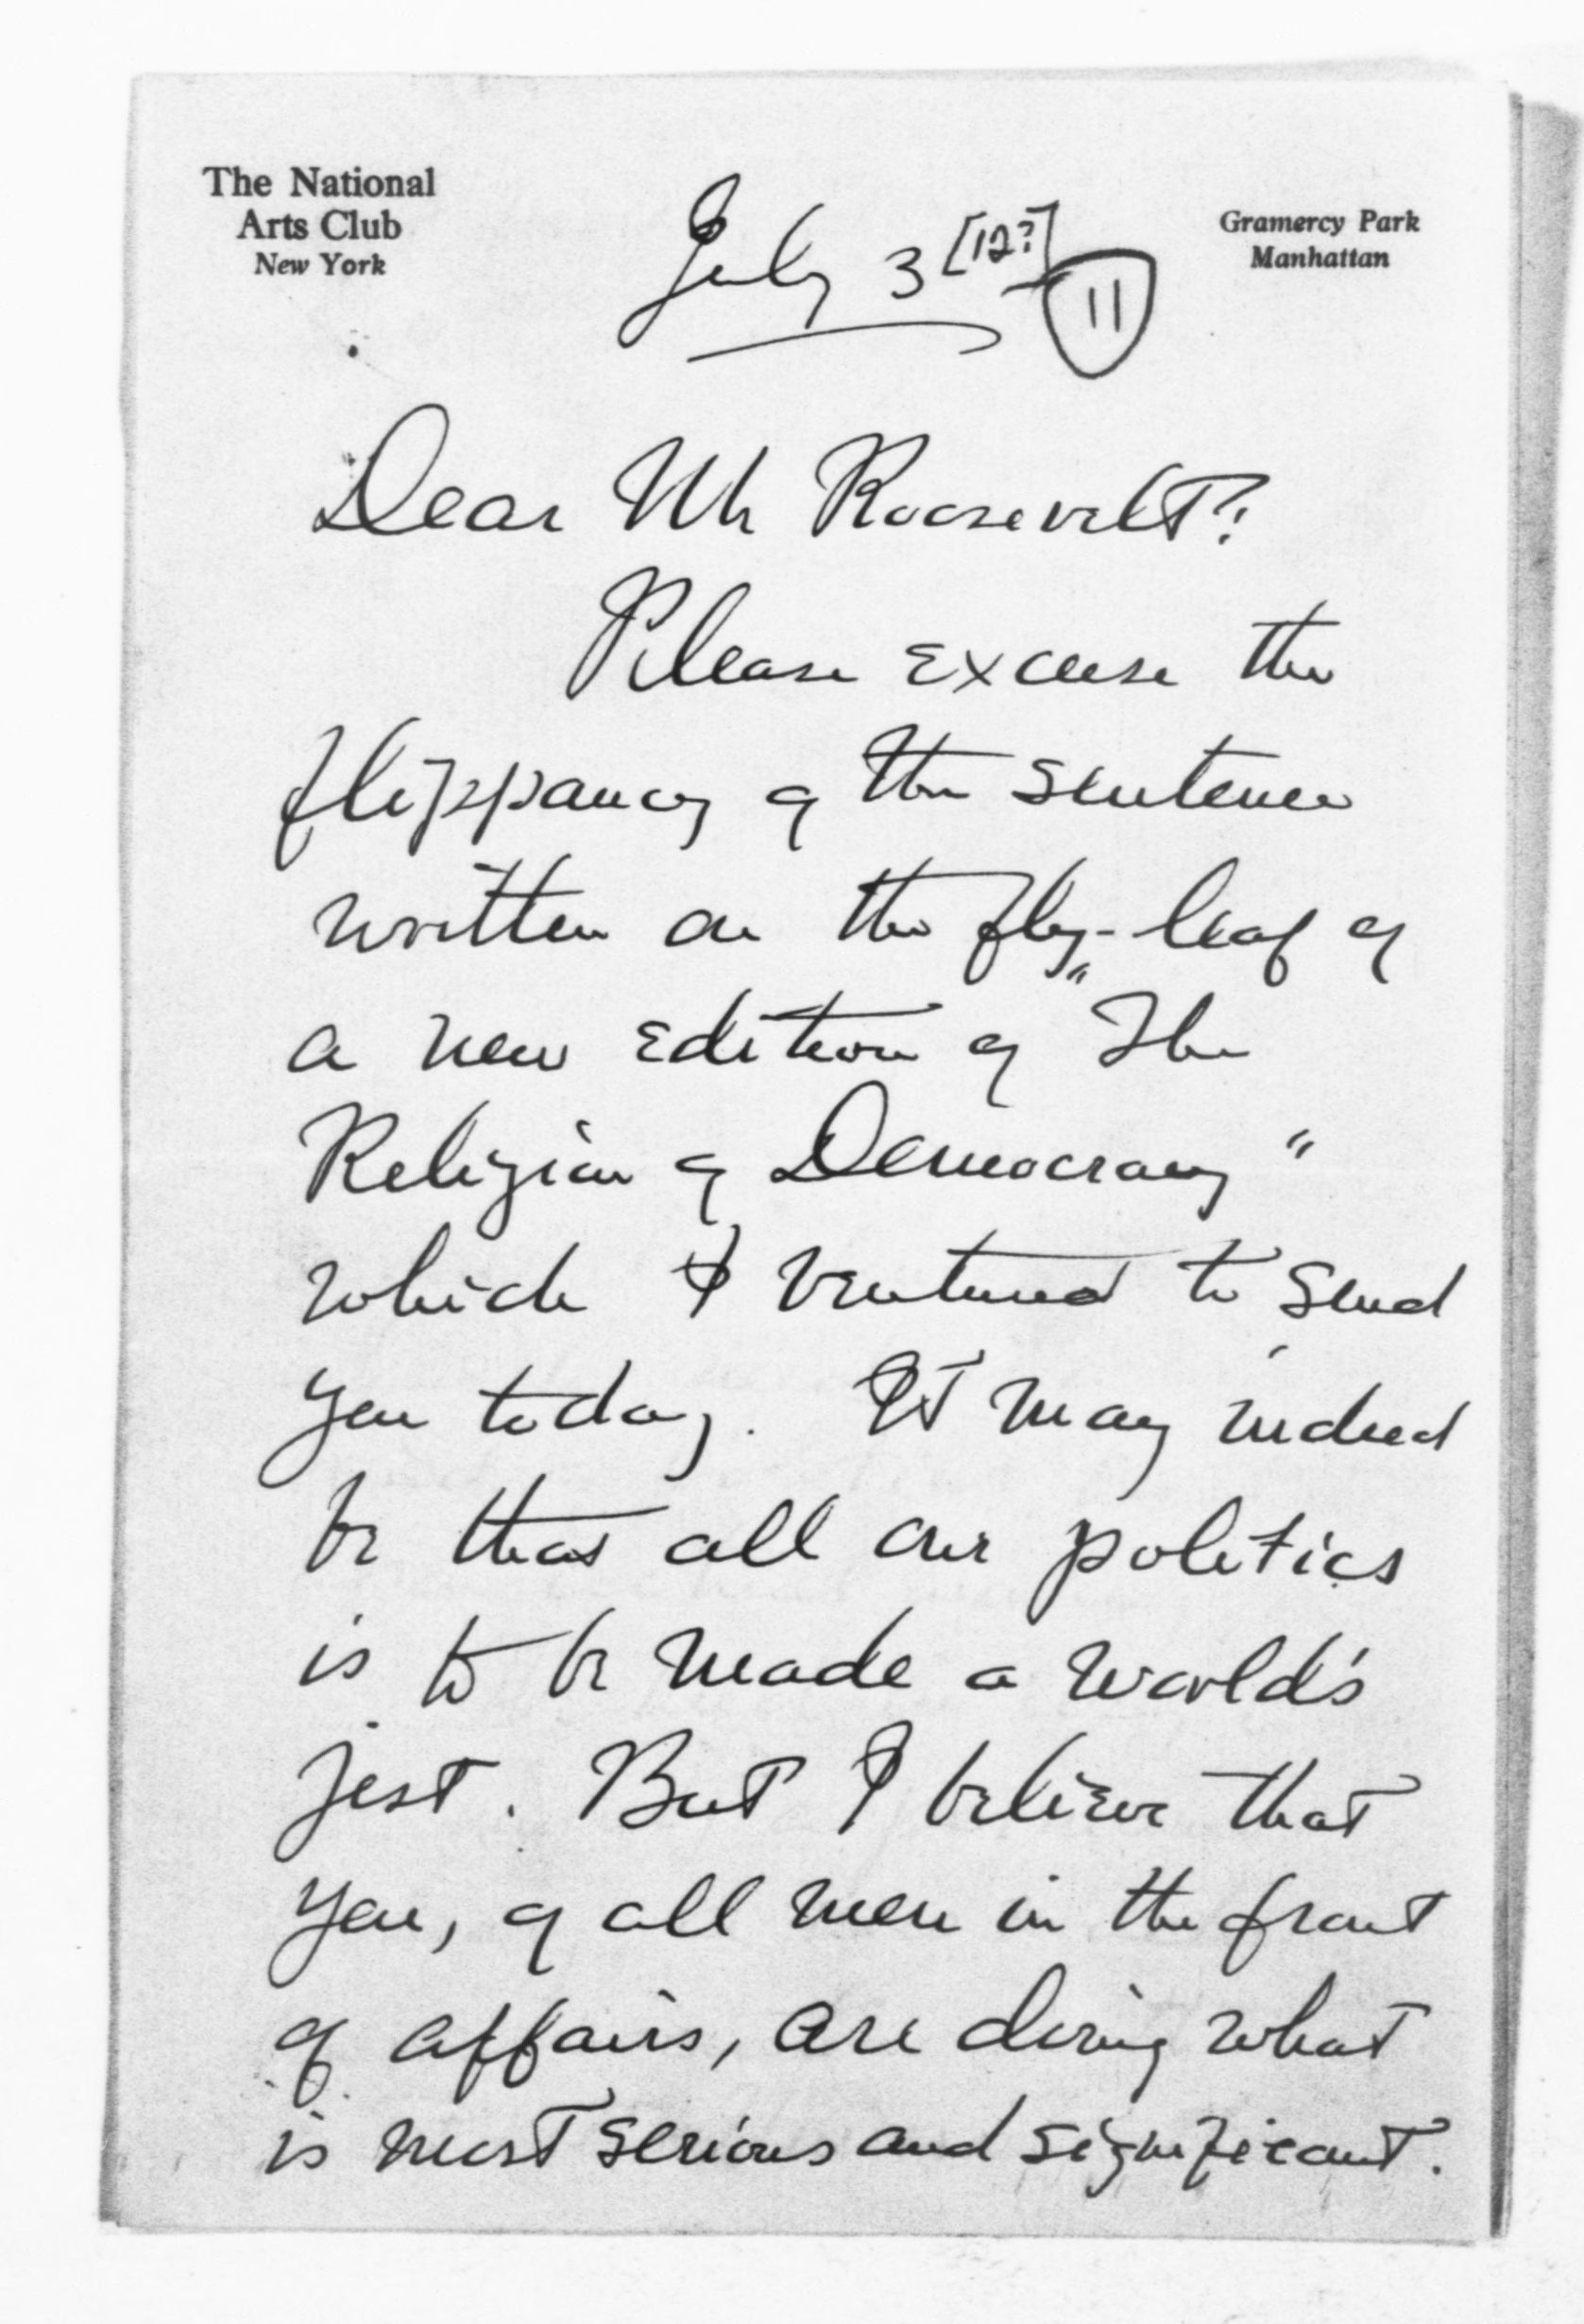 The National
Arts Club
New York
July 3 [12?]
11
Gramercy Park
Manhattan
Dear Mr Roosevelt:
Please excuse the
flippancy of the sentence
written on the fly-leaf of
a new edition of "The
Religion of Democracy"
which I ventured to send
you today. It may indeed
be that all our politics
is to be made a world's
jest. But I believe that
you, of all men in the front
of affairs, are doing what
is most serious and significant.